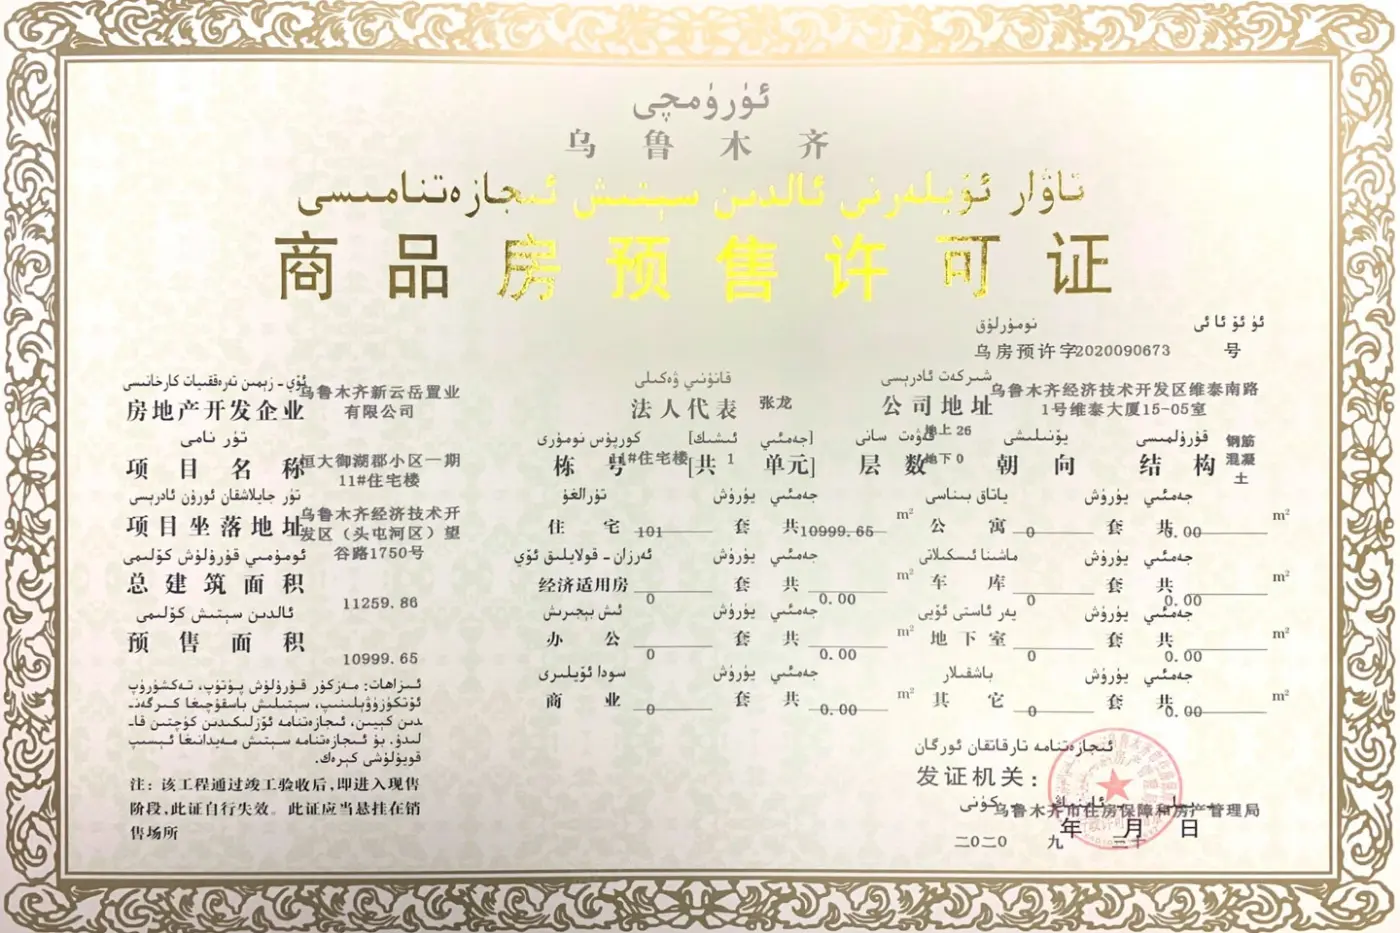 ئۈرۈمچى
乌鲁木齐
تاۋار ئۆيلەرنى ئالدىن سېتىش ئىجازەتنامىسى
商品房预售许可证
نومۇرلۇق
乌房预许字2020090673 号
ئۆي - زېمىن تەرەققىيات كارخانىسى
房地产开发企业 乌鲁木齐新云岳置业
有限公司
قانۇنىي ۋەكىلى
法人代表 张龙
شىركەت ئادرېسى
公司地址 乌鲁木齐经济技术开发区维泰南路
1号维泰大厦15-05室
تۈر نامى
项目名称 恒大御湖郡小区一期
11#住宅楼
كورپۇس نومۇرى [جەمئىي ئىشىك]
栋号 11#住宅楼 [共 1 单元]
قەۋەت سانى
层数 地上 26
地下 0
يۆنىلىشى
朝向
قۇرۇلمىسى
结构 钢筋
混凝
土
تۈر جايلاشقان ئورۇن ئادرېسى
项目坐落地址 乌鲁木齐经济技术开
发区（头屯河区）望
谷路1750号
تۇرالغۇ يۈرۈش جەمئىي
住宅 101 套 共 10999.65 m²
ياتاق بىناسى يۈرۈش جەمئىي
公寓 0 套 共 0.00 m²
ئومۇمىي قۇرۇلۇش كۆلىمى
总建筑面积 11259.86
ئەرزان - قولايلىق ئۆي يۈرۈش جەمئىي
经济适用房 0 套 共 0.00 m²
ماشىنا ئىسكىلاتى يۈرۈش جەمئىي
车库 0 套 共 0.00 m²
ئالدىن سېتىش كۆلىمى
预售面积 10999.65
ئىش بېجىرىش يۈرۈش جەمئىي
办公 0 套 共 0.00 m²
يەر ئاستى ئۆيى يۈرۈش جەمئىي
地下室 0 套 共 0.00 m²
سودا ئۆيلىرى يۈرۈش جەمئىي
商业 0 套 共 0.00 m²
باشقىلار يۈرۈش جەمئىي
其它 0 套 共 0.00 m²
ئىزاھات: مەزكۇر قۇرۇلۇش پۈتۈپ، تەكشۈرۈپ
ئۆتكۈزۈۋېلىنىپ، سېتىلىش باسقۇچىغا كىرگەن-
دىن كېيىن، ئىجازەتنامە ئۆزلىكىدىن كۈچتىن قا-
لىدۇ. بۇ ئىجازەتنامە سېتىش مەيدانىغا ئېسىپ
قويۇلۇشى كېرەك.
注：该工程通过竣工验收后,即进入现售
阶段,此证自行失效。此证应当悬挂在销
售场所
ئىجازەتنامە تارقاتقان ئورگان
发证机关：
乌鲁木齐市住房保障和房产管理局
二〇二〇 年 九 月 三十 日